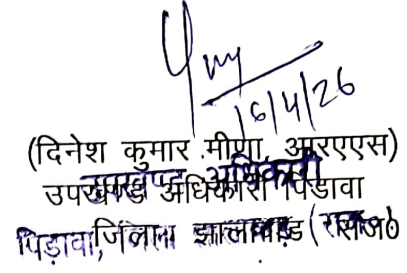 16/4/26
(दिनेश कुमार मीणा, आरएएस)
उपखण्ड अधिकारी पिडावा
पिड़ावा, जिला झालावाड़ (राज०)